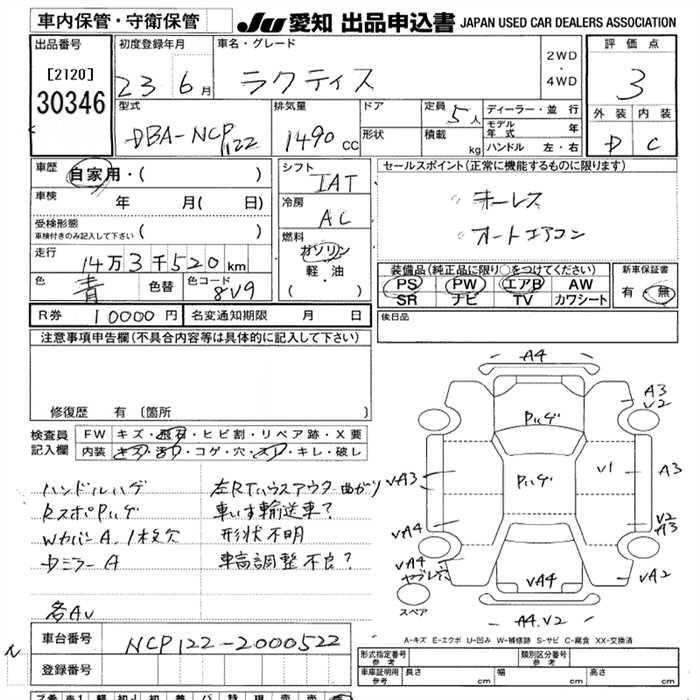 車内保管・守衛保管
JU 愛知 出品申込書 JAPAN USED CAR DEALERS ASSOCIATION
出品番号
[2120]
30346
初度登録年月
23 6月
車名・グレード
ラクティス
2WD
・
4WD
評価点
3
外装 内装
D C
型式
DBA-NCP122
排気量
1490 CC
ドア
形状
定員
5人
積載
kg
ディーラー・並行
モデル年式 年
ハンドル 左・右
車歴
自家用・( )
車検
年 月( 日)
受検形態
車検付きのみ記入して下さい ( )
走行
14万3千520km
色
青
色替
色コード
8V9
シフト
IAT
冷房
AC
燃料
ガソリン
軽・油
( )
セールスポイント(正常に機能するものに限ります)
キーレス
オートエアコン
装備品(純正品に限り○をつけてください)
PS PW エアB AW
SR ナビ TV カワシート
新車保証書
有・無
R券 10000円
名変通知期限 月 日
後日品
注意事項申告欄(不具合内容等は具体的に記入して下さい)
修復歴 有 [箇所 ]
検査員記入欄
FW キズ・飛石・ヒビ割・リペア跡・X要
内装 キズ・汚れ・コゲ・穴・スレ・キレ・破レ
ハンドルハゲ
RスポPハゲ
WカバーA.1枚欠
DミラーA
各AV
左RTハウスアウタ曲がり
車いす輸送車?
形状不明
車高調整不良?
A4
A3
V2
Pハゲ
Pハゲ
V1
A3
VA3
V2
A3
VA4
VA4
ヤブレ
VA4
VA2
スペア
A4.V2
A-キズ E-エクボ U-凹み W-補修跡 S-サビ C-腐食 XX-交換済
車台番号
NCP122-2000522
登録番号
形式指定番号
参考
類別区分番号
参考
車庫証明用
参考
長さ cm
幅 cm
高さ cm